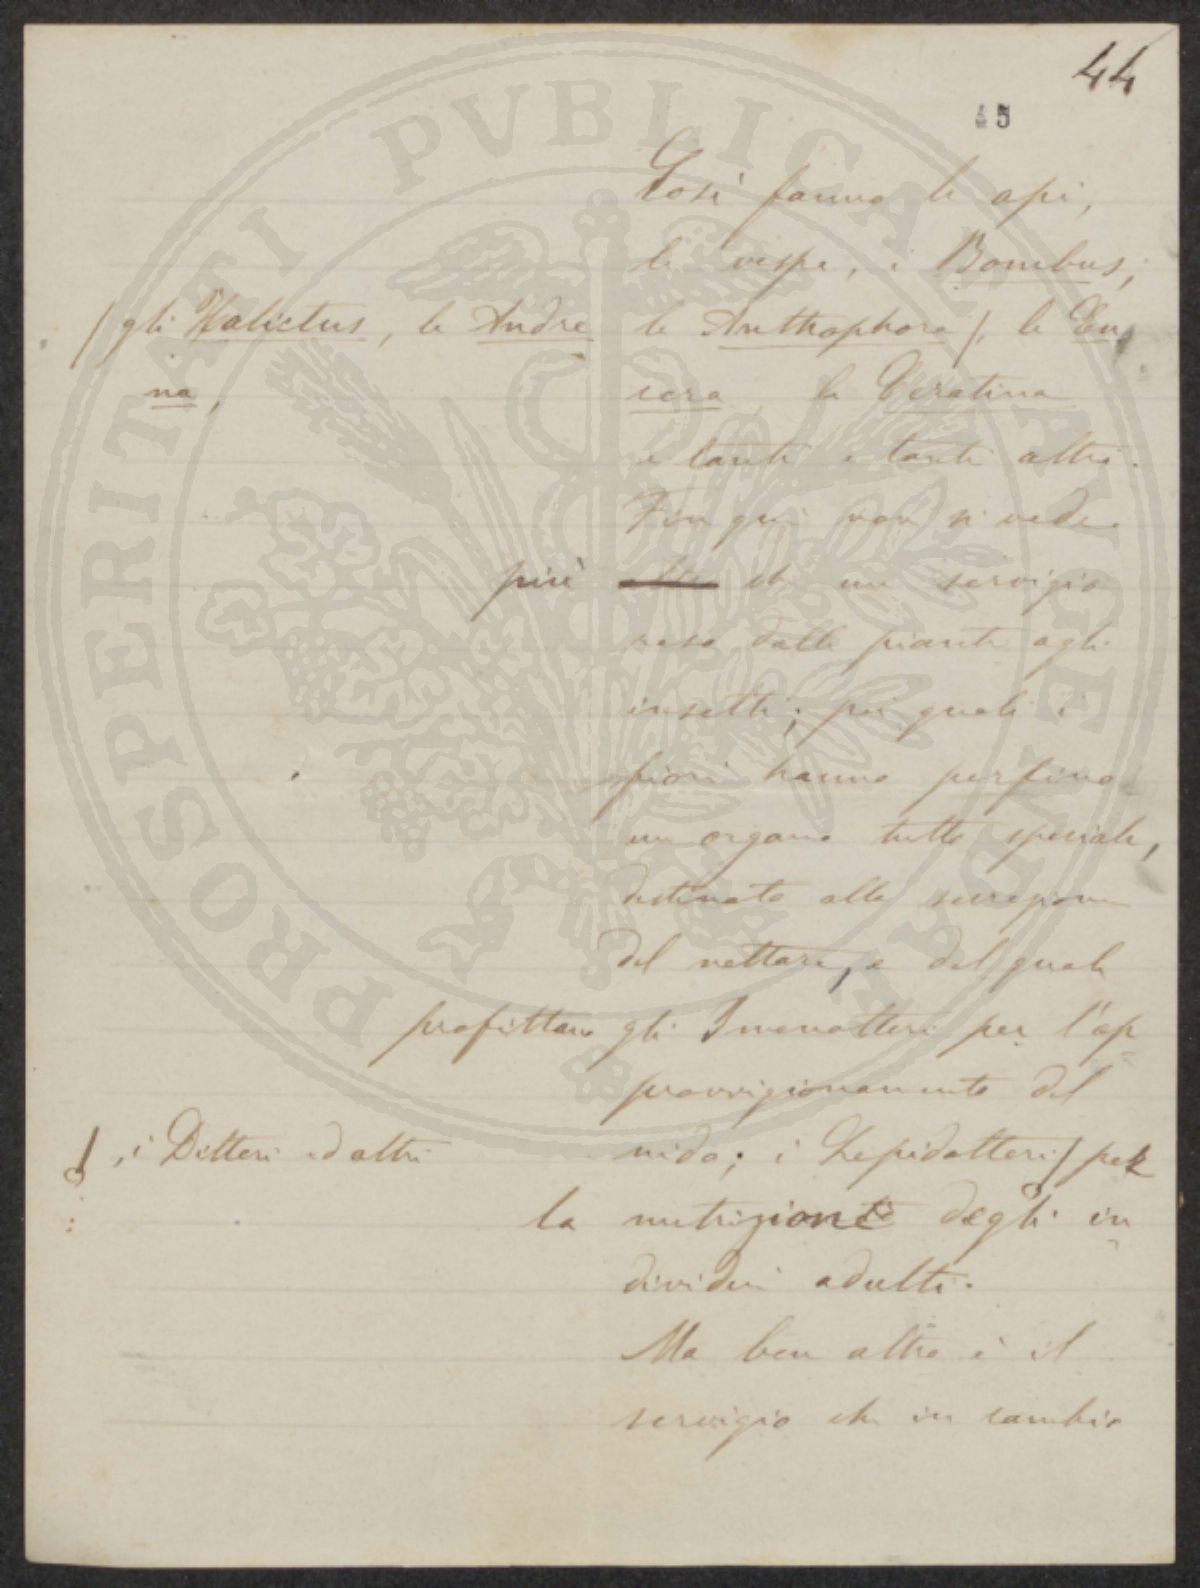 44
45
Così fanno le api,
le vespe, i Bombus,
/ gli Halictus, le Andre
na,
le Anthophora /, le Eu
cera le Ceratina
e tanti e tanti altri.
Fin qui non si vede
più che un servigio
reso dalle piante agli
insetti; pei quali i
fiori hanno perfino
un organo tutto speciale,
destinato alla secrezione
del nettare, e del quale
profittano gli Imenotteri per l'ap
provvigionamento del
nido; i Lepidotteri / per
, i Ditteri ed altri
la nutrizione degli in
dividui adulti.
Ma ben altro è il
servigio che in cambio
PROSPERITATI PVBLICAE AVGENDAE